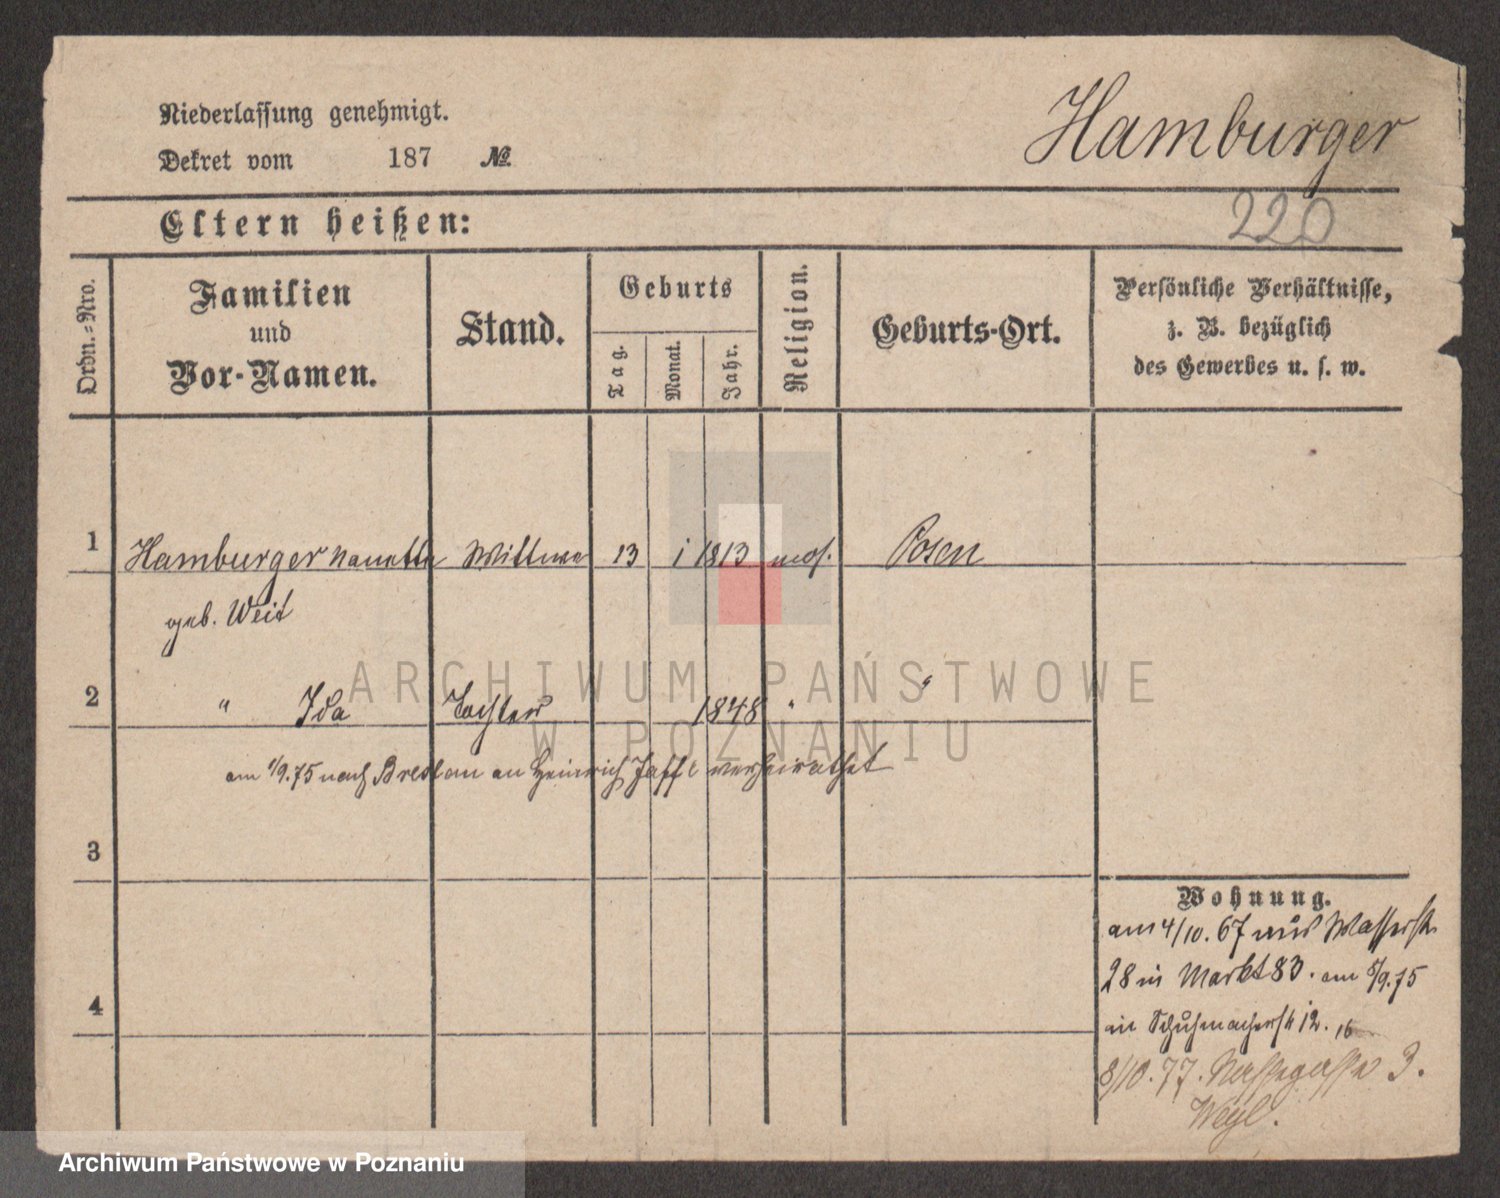 Niederlassung genehmigt.
Dekret vom 187 №
Hamburger
220
Eltern heißen:
Ordn.-Nro.
Familien
und
Vor-Namen.
Stand.
Geburts
Tag.
Monat.
Jahr.
Religion.
Geburts-Ort.
Persönliche Verhältnisse,
z. B. bezüglich
des Gewerbes u. s. w.
1 Hamburger Nanette Wittwe 13 1 1813 mos. Posen
geb. Weit
2 " Ida Tochter 1848 " "
am 1/9.75 nach Breslau an Heinrich Jaffe verheirathet
3
4
Wohnung.
am 4/10. 67 aus Wasserstr
28 in Markt 83. am 5/9.75
in Schuhmacherstr 12. 16
8/10. 77. Nassegasse 3.
Weyl.
ARCHIWUM PAŃSTWOWE
W POZNANIU
Archiwum Państwowe w Poznaniu